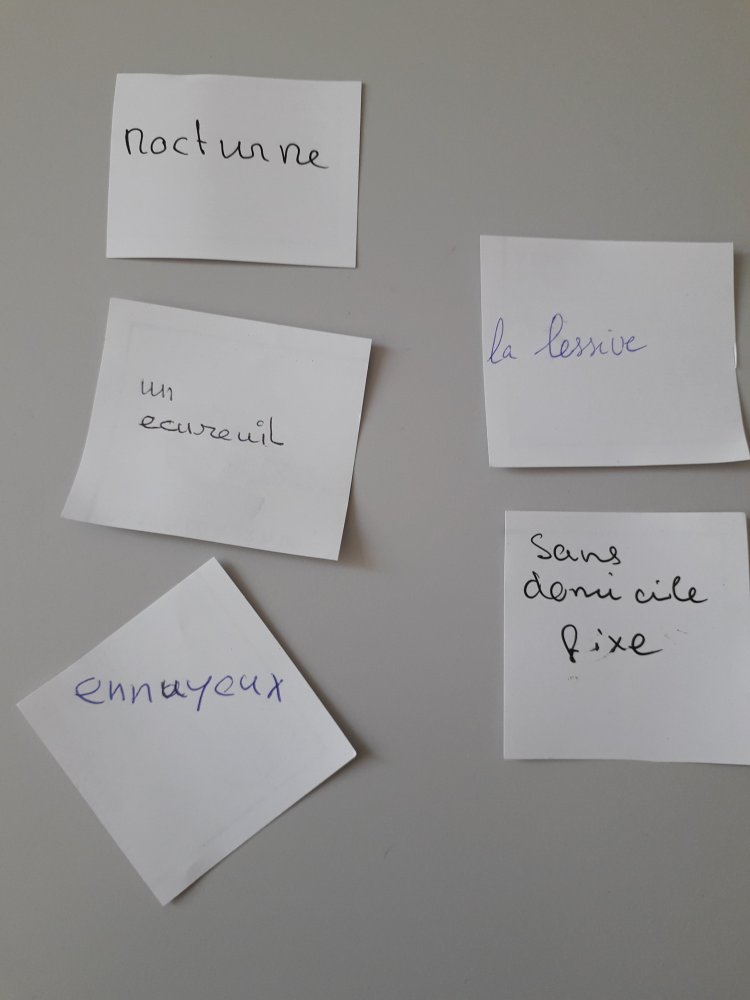 nocturne
un
ecureuil
ennuyeux
la lessive
sans
domicile
fixe